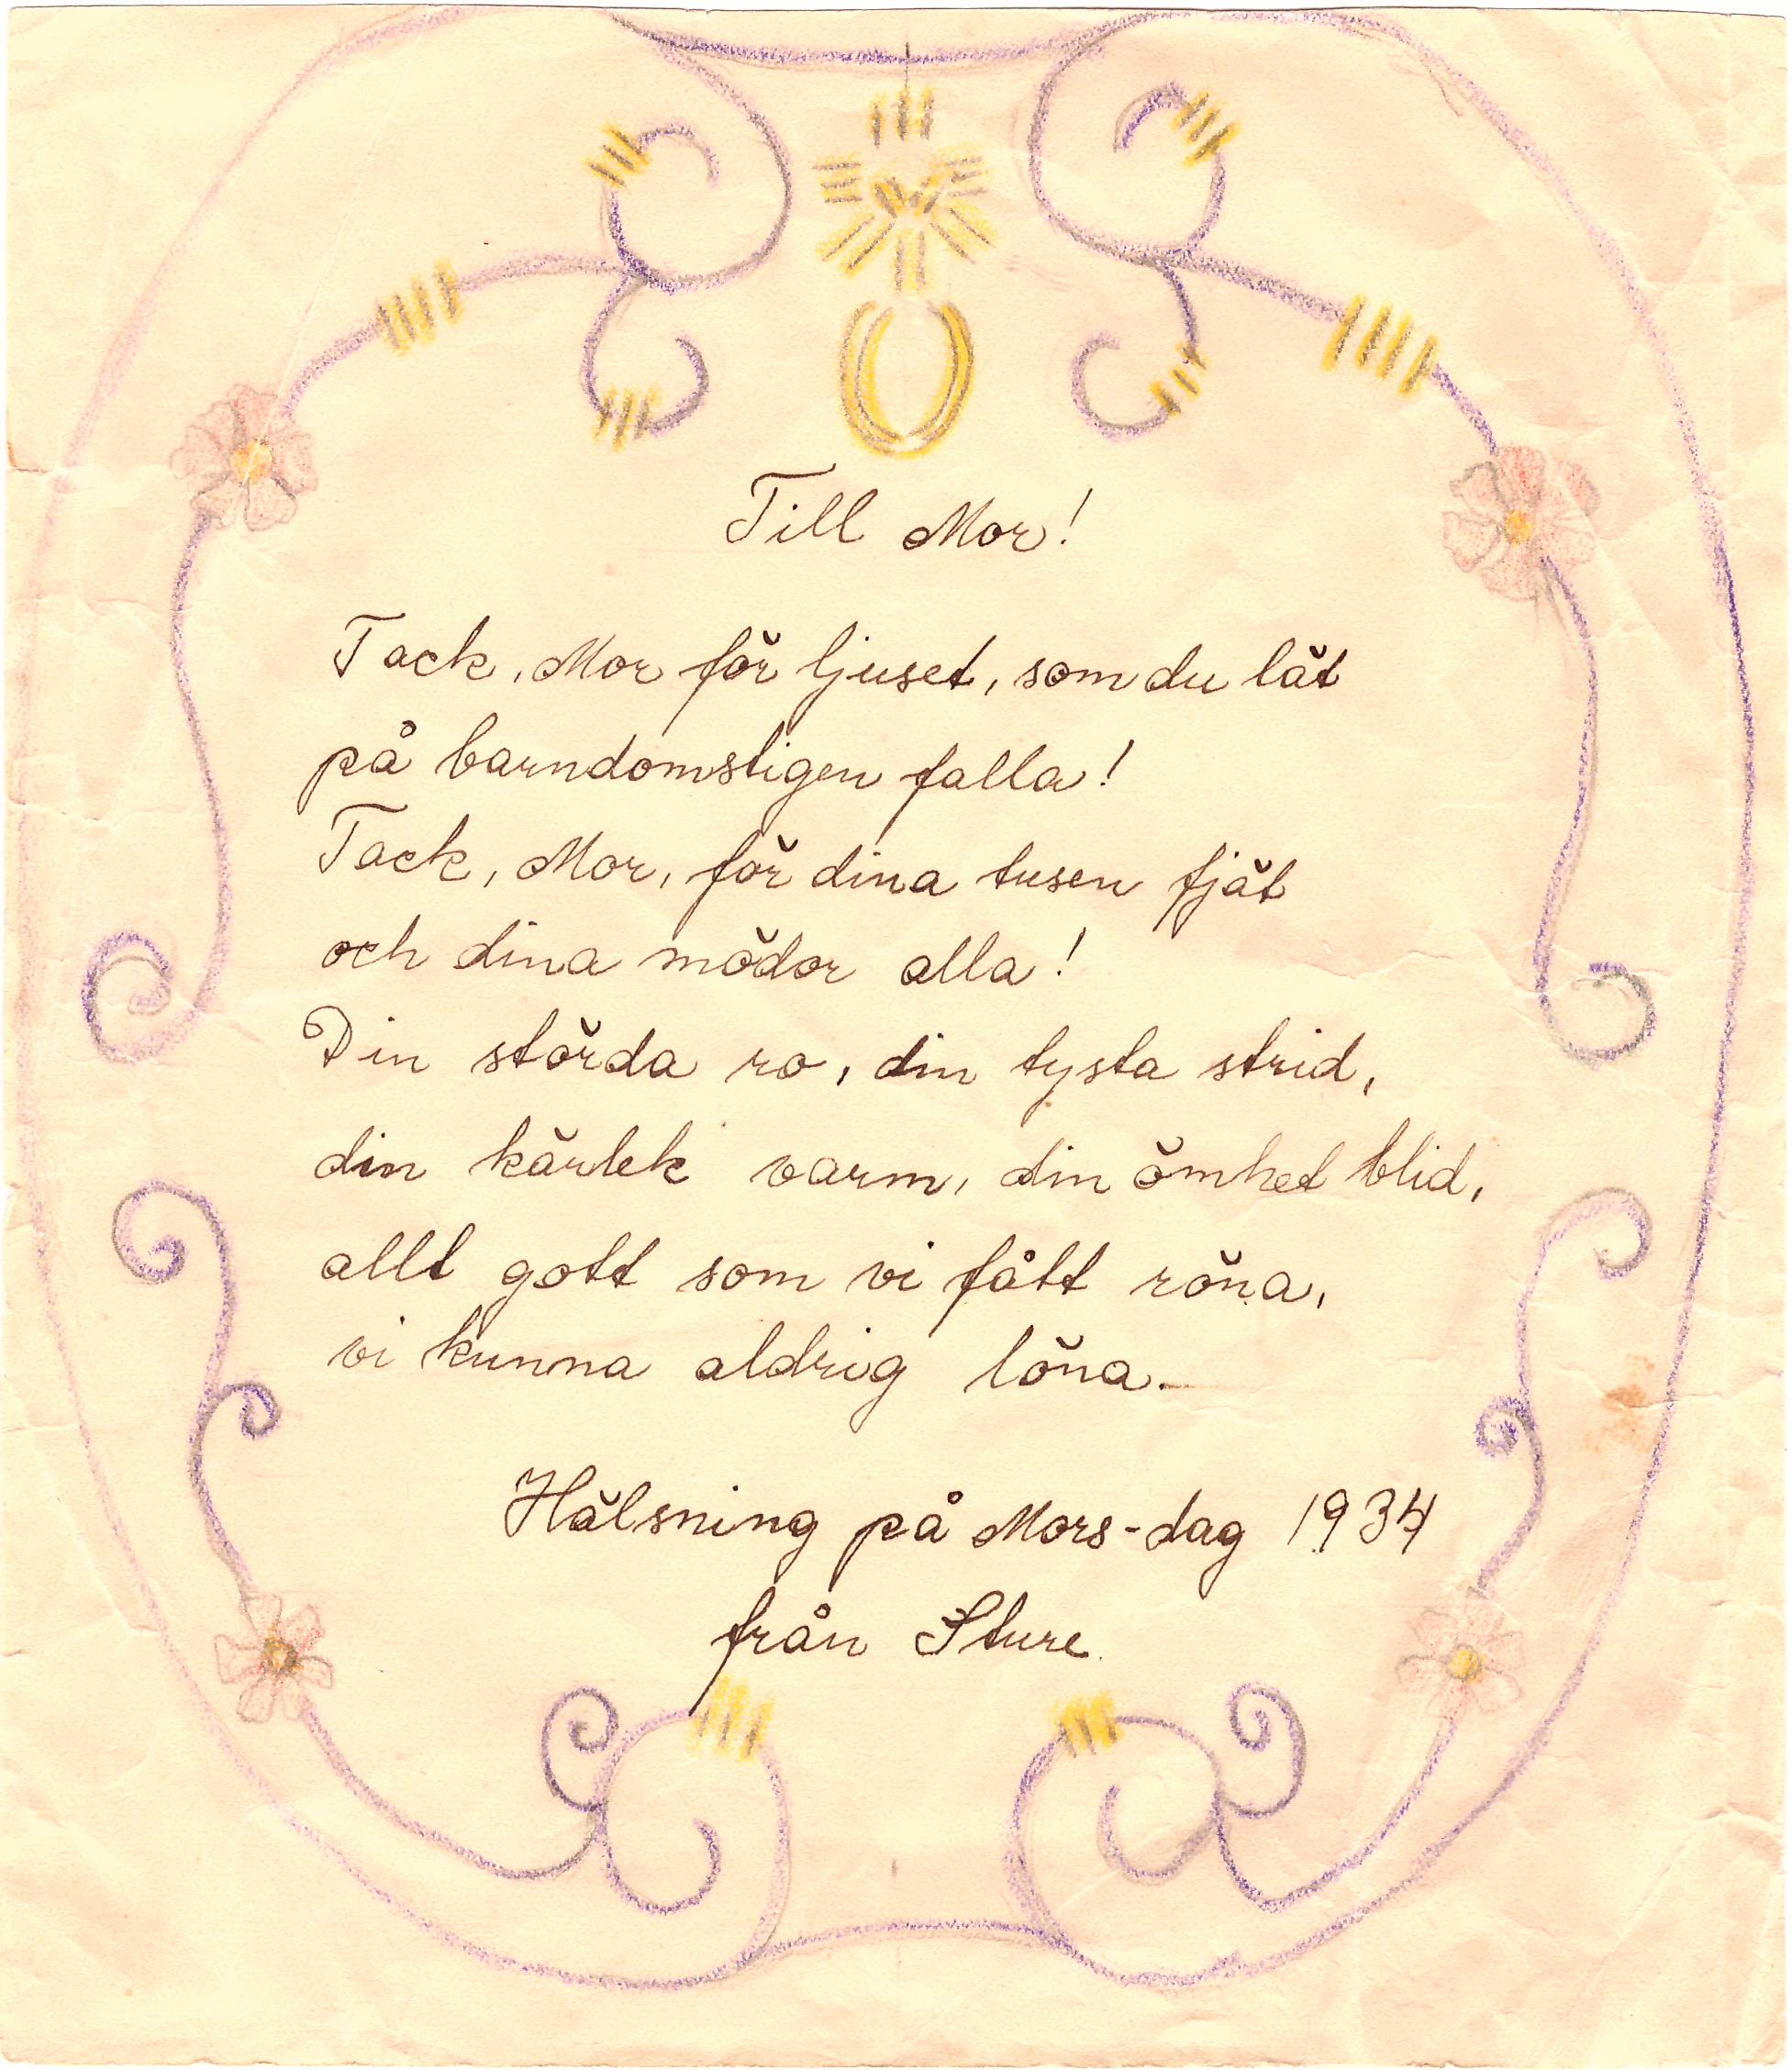 Till Mor!
Tack, Mor för ljuset, som du lät
på barndomstigen falla!
Tack, Mor, för dina tusen fjät
och dina mödor alla!
Din störda ro, din tysta strid,
din kärlek varm, din ömhet blid,
allt gott som vi fått röna,
vi kunna aldrig löna.
Hälsning på Mors-dag 1934
från Sture.